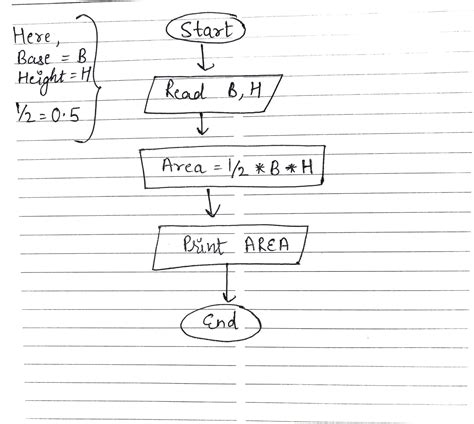 Here,
Base = B
Height = H
1/2 = 0.5
Start
Read B, H
Area = 1/2 * B * H
Print AREA
End